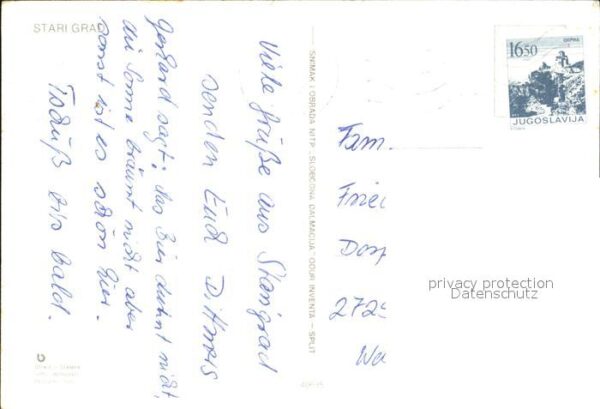 STARI GRAD
Viele Grüße aus Starigrad
senden Euch D. + 
Gerhard sagt: das Bier duhnt nicht,
die Sonne bräunt nicht aber
sonst ist es schön hier.
Tschüß bis bald.
SNIMAK I OBRADA NITP „SLOBODNA DALMACIJA" - OOUR INVENTA - SPLIT
16.50
JUGOSLAVIJA
Fam.
Fried
Dorf
2729
Wa
privacy protection
Datenschutz